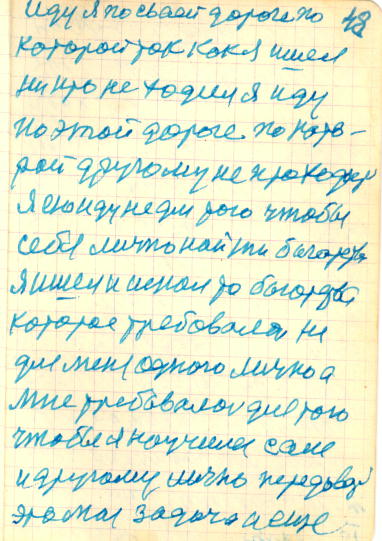 иду я по своей дороге по 48
которой так как я ишел
никто не ходил я иду
по этой дороге по кото-
рой другому не проходил
я ею иду не для того чтобы
себе лично найти богатства
я ишел и искал то богатства
которое требовалось не
для мене одного лично а
мне требовалось для того
чтобы я научился сам
и другому лично передовал
это моя задача и еще